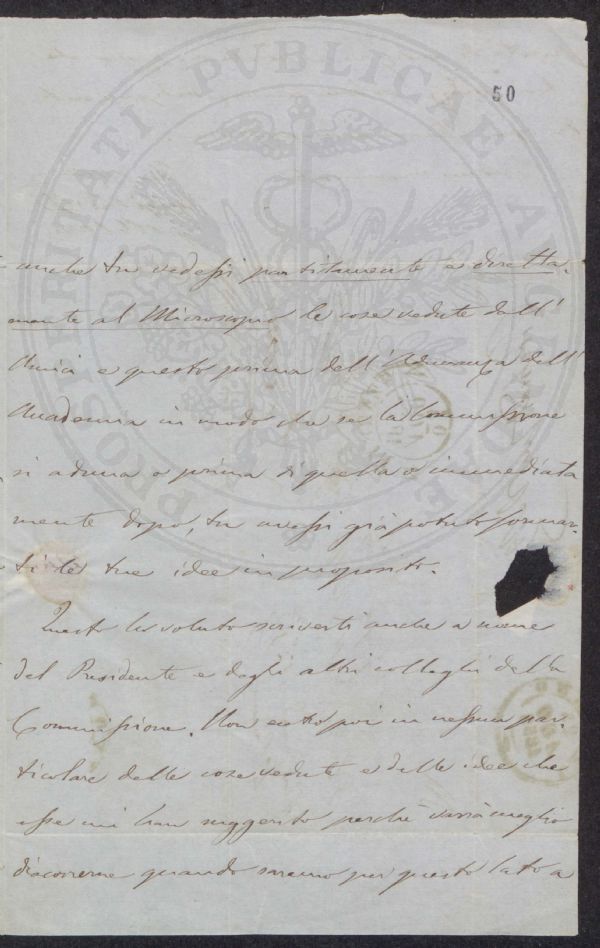 PROSPERITATI PVBLICAE AVGENDAE
50
anche tu vedessi partitamente e diretta-
mente al Microscopio le cose vedute dall'
Amici e questo prima dell'Adunanza dell'
Accademia in modo che se la Commissione
si aduna o prima di quella o immediata
mente dopo, tu avessi già potuto formar-
ti le tue idee in proposito.
Questo ho voluto scriverti anche a nome
del Presidente e degli altri colleghi della
Commissione. Non entro poi in nessun par-
ticolare delle cose vedute e delle idee che
esse mi han suggerito perchè varrà meglio
discorrerne quando saremo per questo lato a